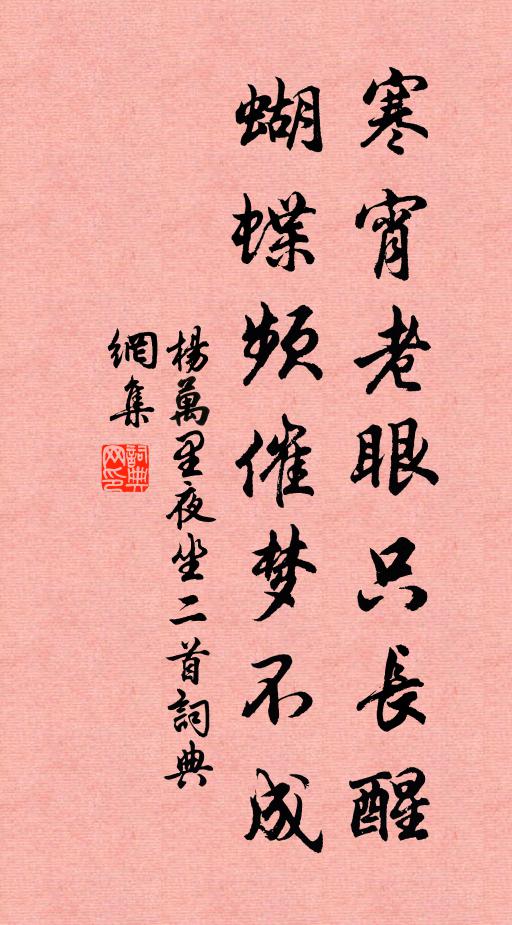 寒宵老眼只長醒
蝴蝶頻催梦不成
楊萬里夜坐二首詞典
網集
詞典
网印